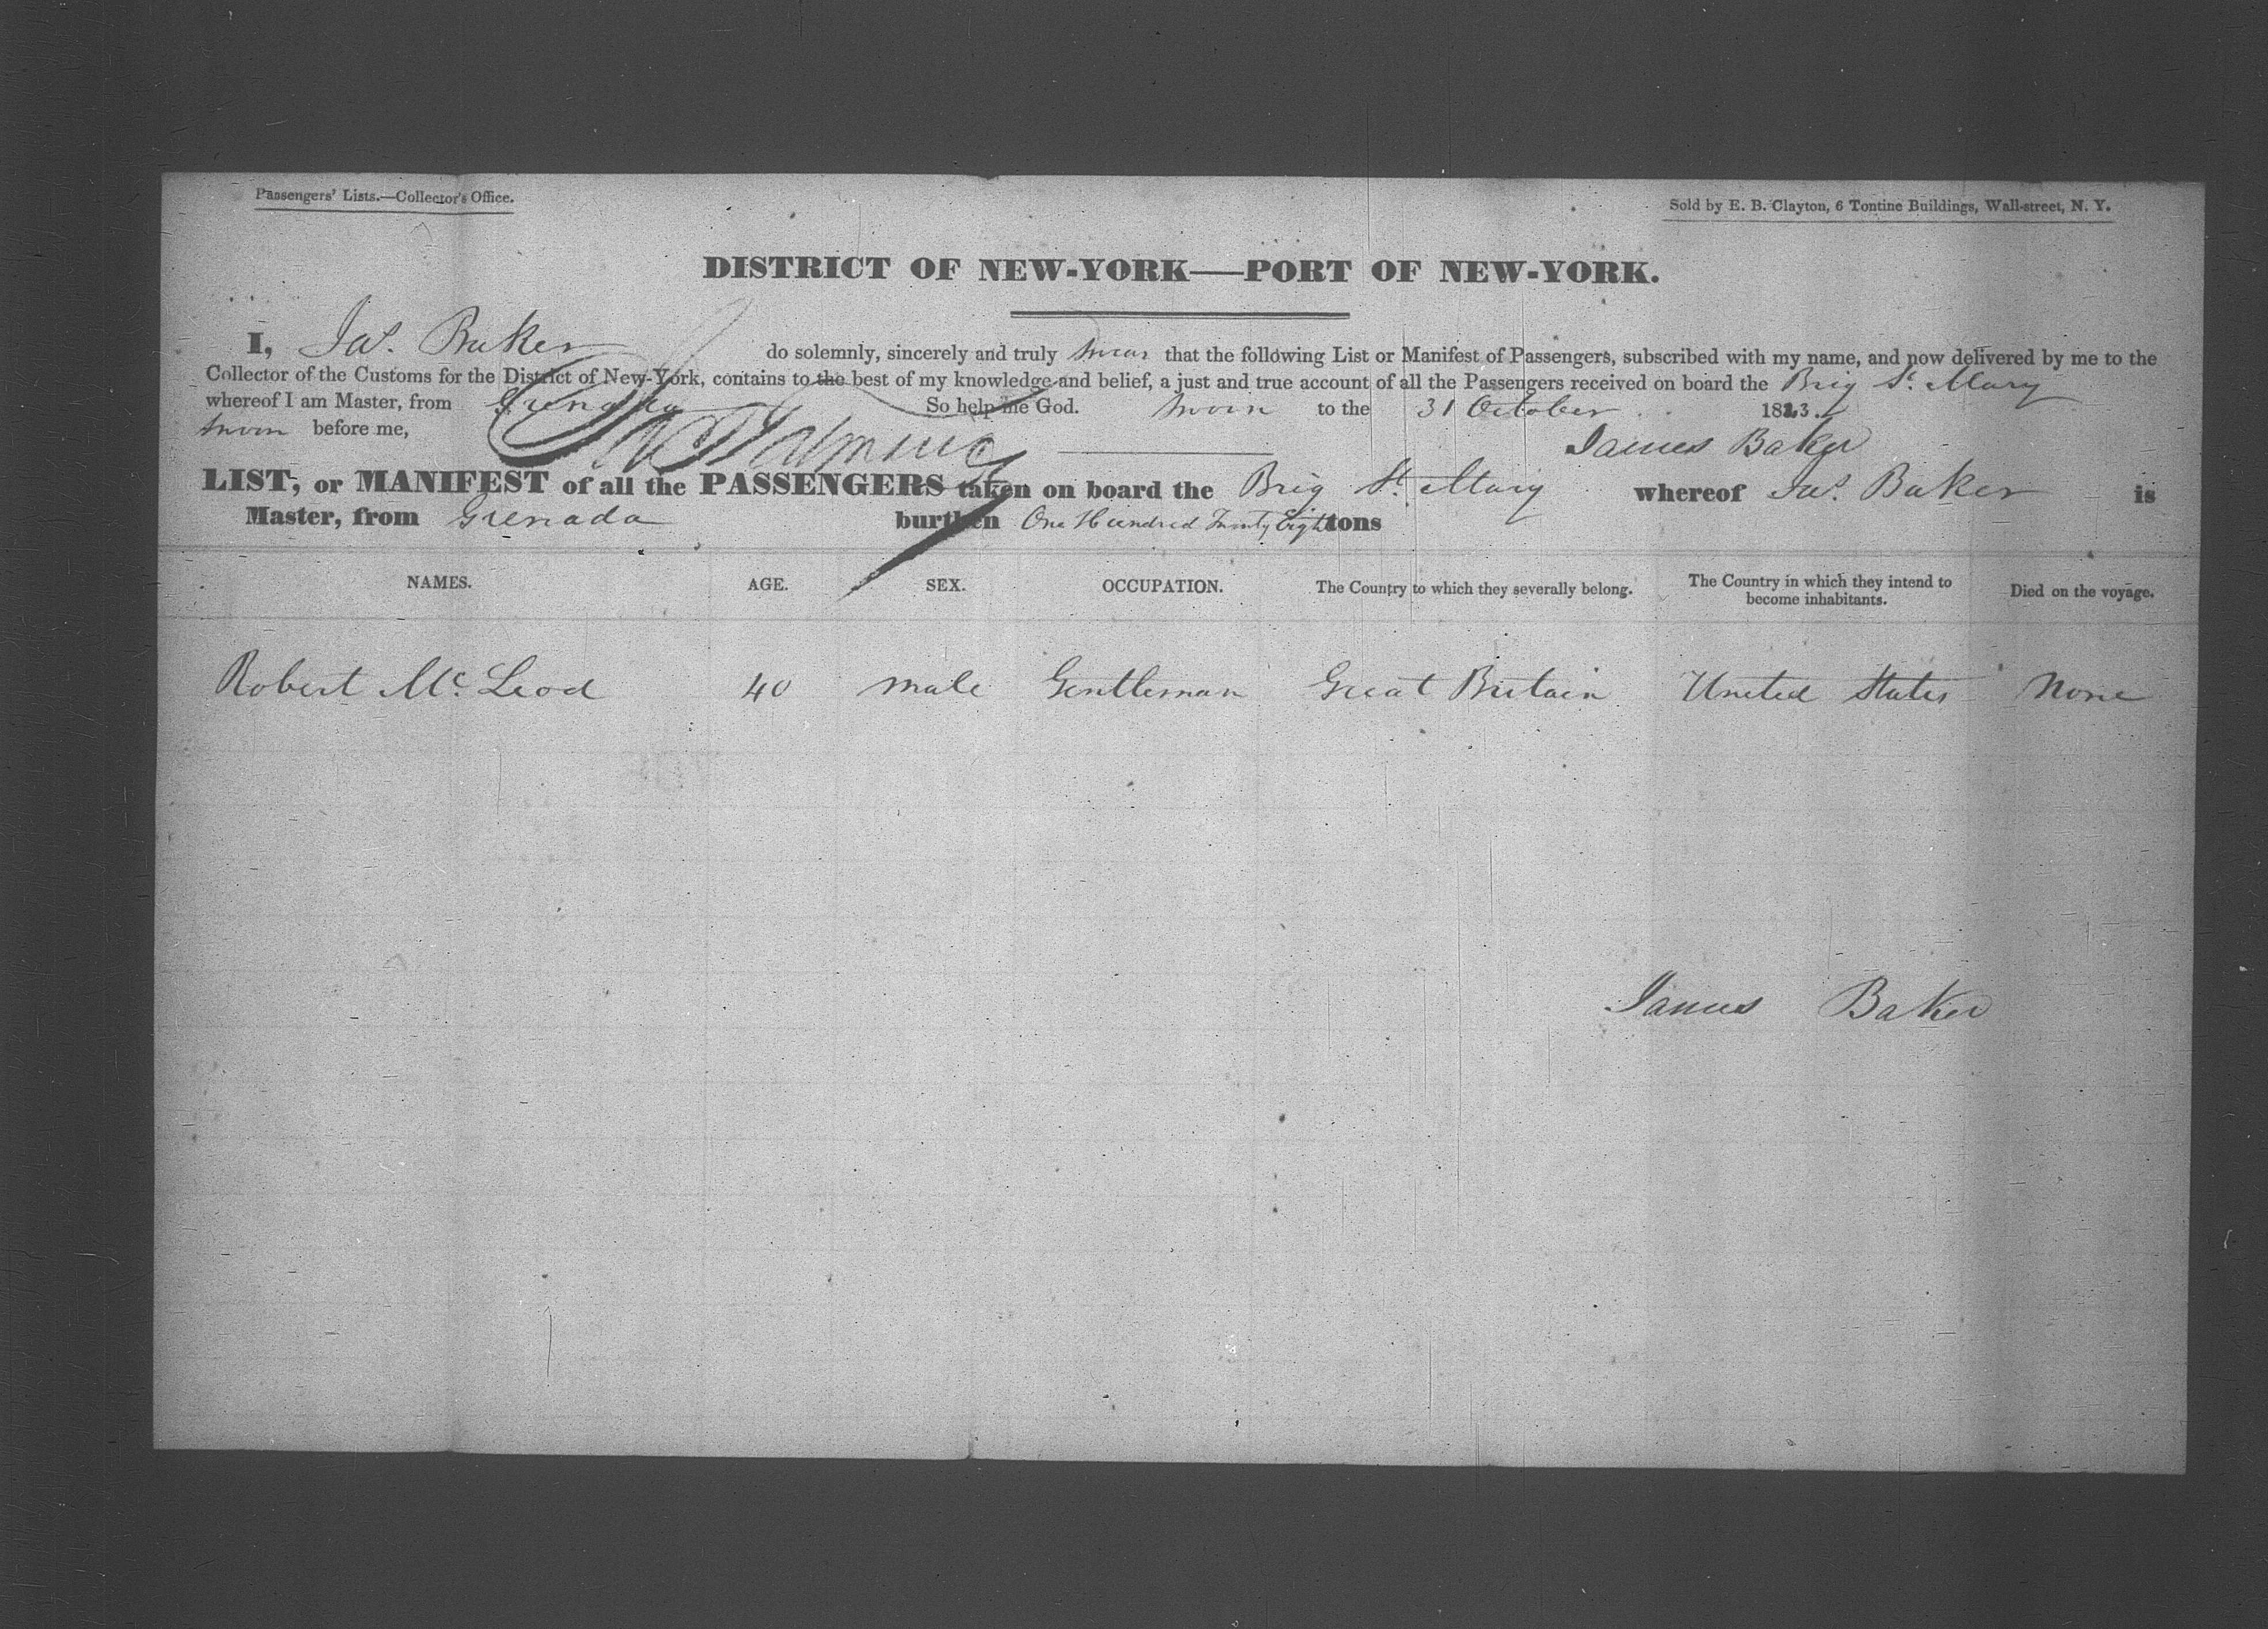 Passengers' Lists.—Collector's Office.
Sold by E. B. Clayton, 6 Tontine Buildings, Wall-street, N. Y.
DISTRICT OF NEW-YORK—PORT OF NEW-YORK.
I, Jas. Baker do solemnly, sincerely and truly swear that the following List or Manifest of Passengers, subscribed with my name, and now delivered by me to the
Collector of the Customs for the District of New-York, contains to the best of my knowledge and belief, a just and true account of all the Passengers received on board the Brig St. Mary
whereof I am Master, from Grenada So help me God. Sworn to the 31 October 1823.
Sworn before me,
James Baker
LIST, or MANIFEST of all the PASSENGERS taken on board the Brig St. Mary whereof Jas. Baker is
Master, from Grenada burthen One Hundred Twenty Eight tons
NAMES. AGE. SEX. OCCUPATION. The Country to which they severally belong. The Country in which they intend to become inhabitants. Died on the voyage.
Robert Mc Leod 40 male Gentleman Great Britain United States None
James Baker